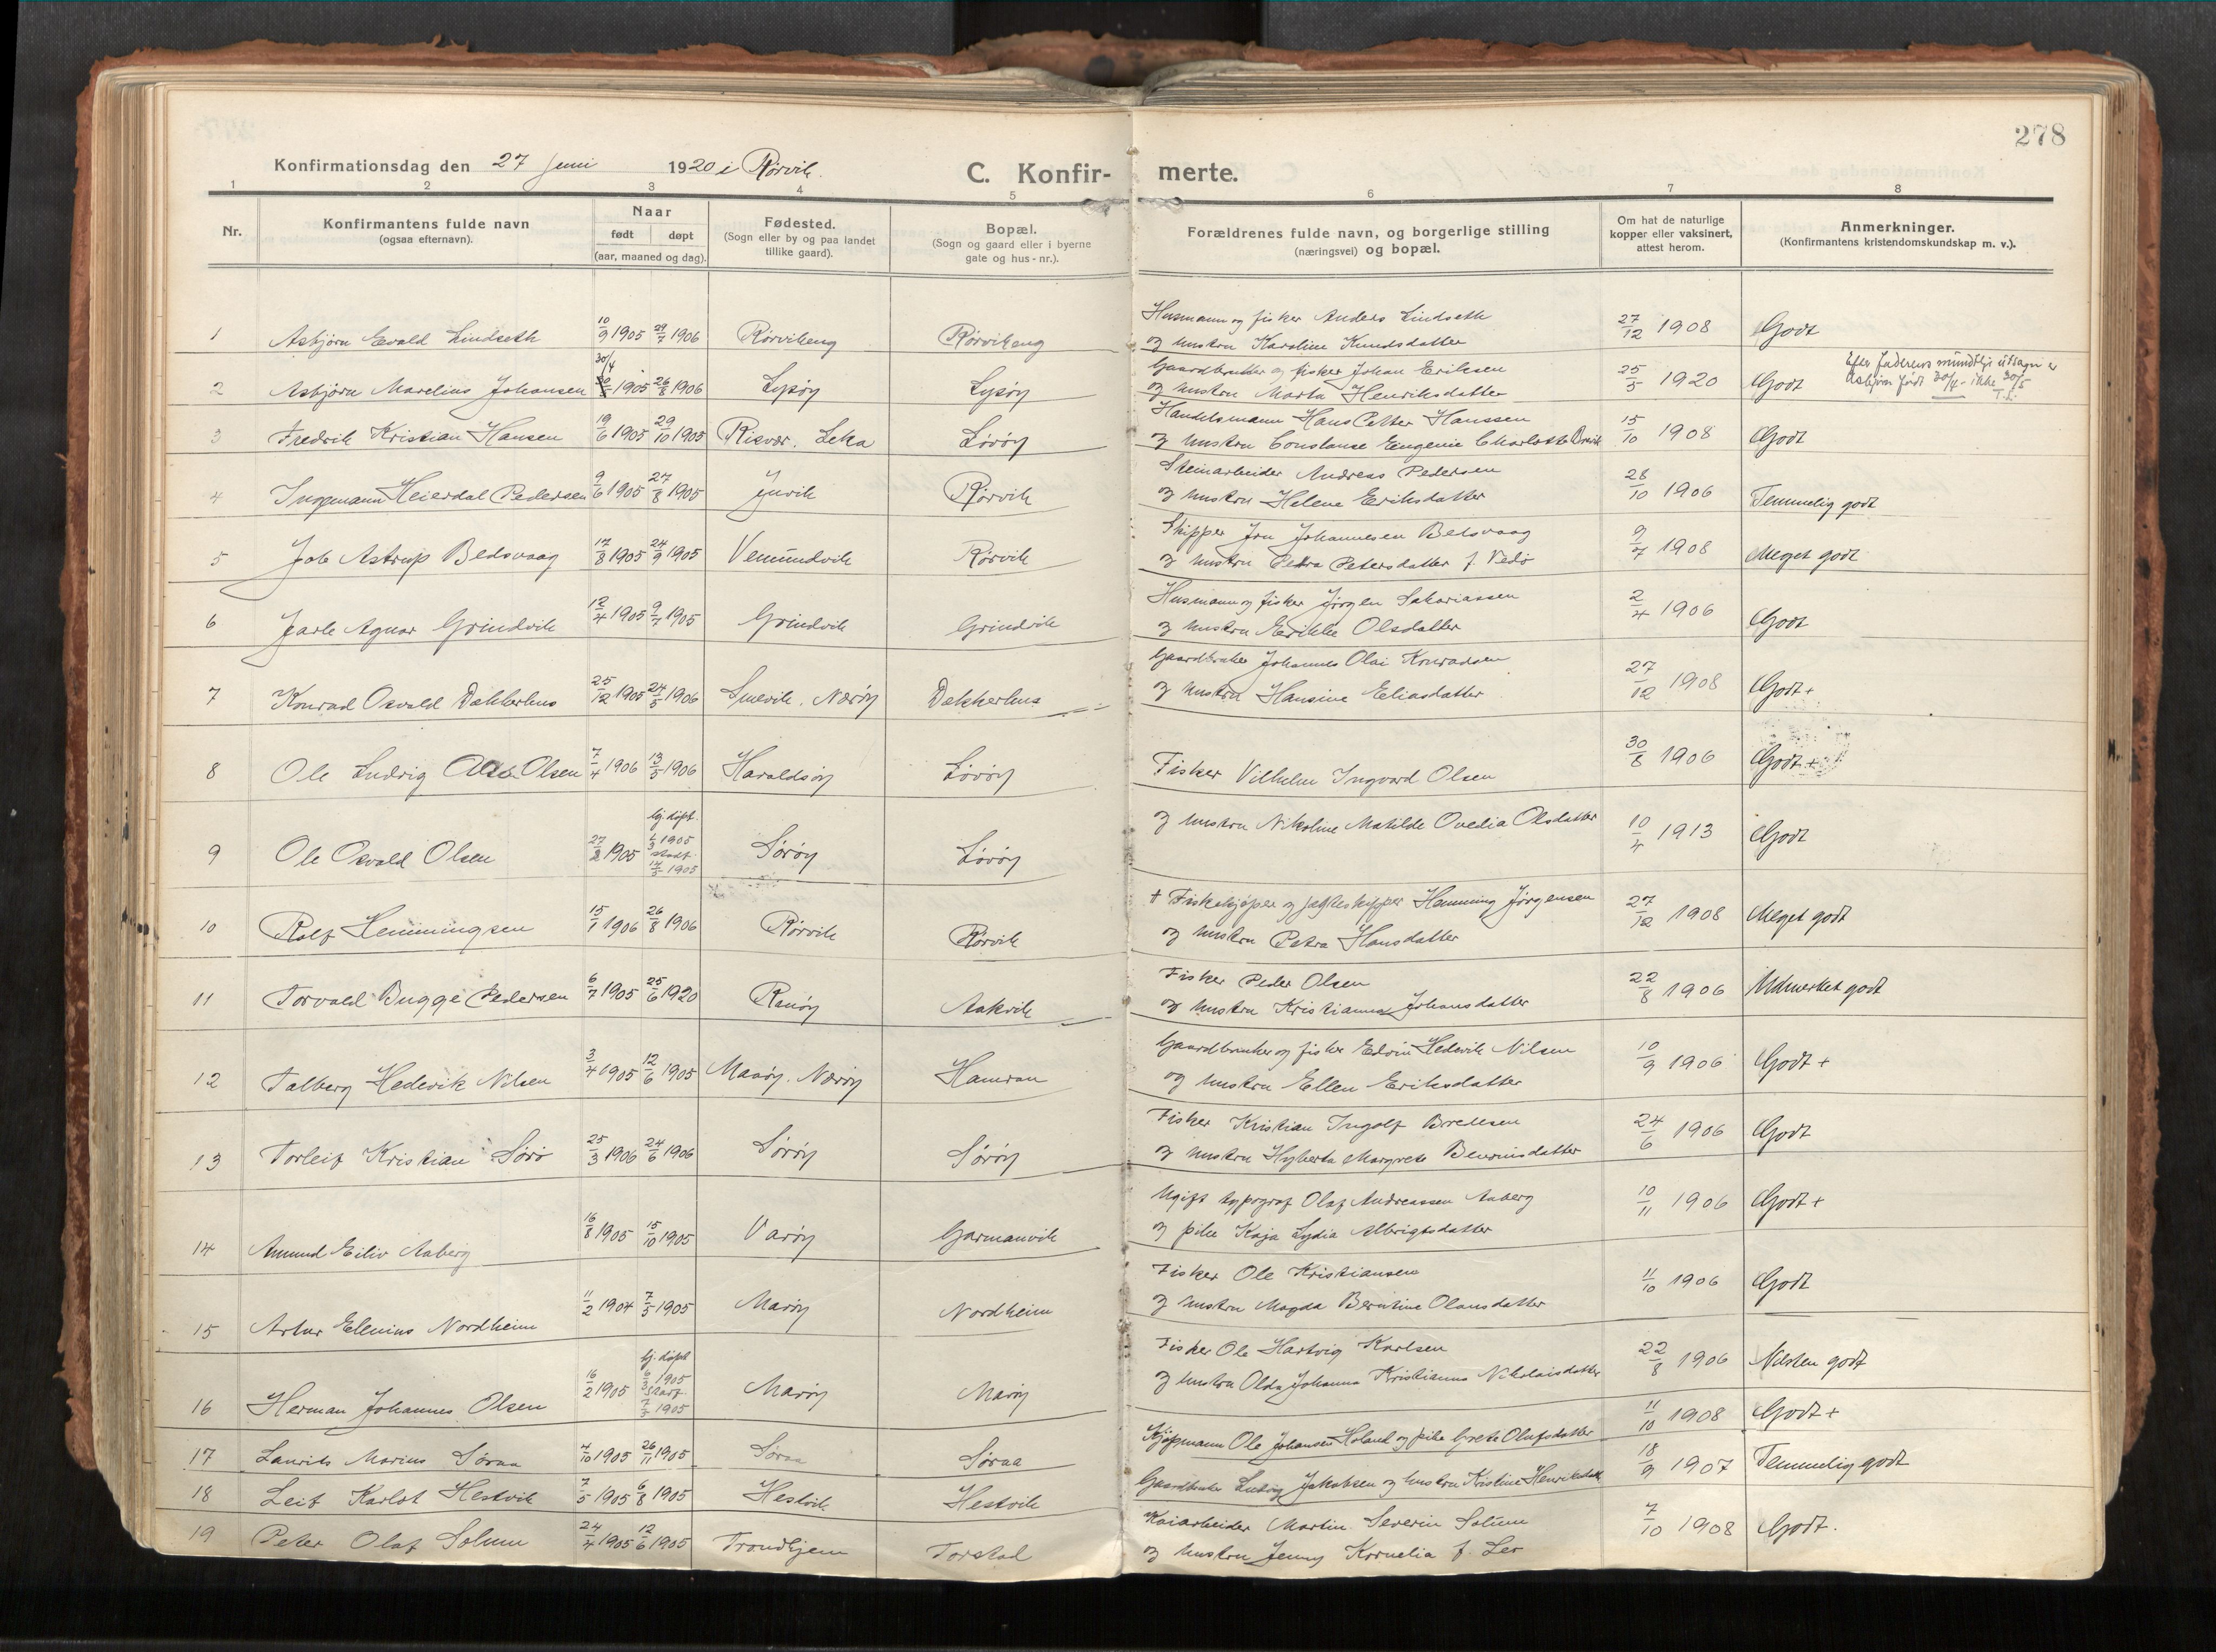 278
Konfirmationsdag den 27 Juni 1920 i Rørvik.
C. Konfir- merte.
1 2 3 4 5 6 7 8
Nr.
Konfirmantens fulde navn
(ogsaa efternavn).
Naar
født døpt
(aar, maaned og dag).
Fødested.
(Sogn eller by og paa landet
tillike gaard).
Bopæl.
(Sogn og gaard eller i byerne
gate og hus-nr.).
Forældrenes fulde navn, og borgerlige stilling
(næringsvei) og bopæl.
Om hat de naturlige
kopper eller vaksinert,
attest herom.
Anmerkninger.
(Konfirmantens kristendomskundskap m. v.).
Husmann og fisker Anders Lindseth
1 Asbjørn Evald Lindseth 10/9 1905 29/7 1906 Rørvikeng Rørvikeng og hustru Karoline Knudsdatter 27/12 1908 Godt
30/4
Gaardbruker og fisker Johan Eriksen
Efter faderens mundtlige utsagn er
Asbjørn født 30/4 - ikke 30/5
2 Asbjørn Marelius Johansen 1905 26/8 1906 Lysøy Lysøy og hustru Marta Henriksdatter 25/5 1920 Godt
Handelsmann Hans Petter Hanssen
3 Fredrik Kristian Hansen 19/6 1905 29/10 1905 Risvær. Leka Løvøy og hustru Constanse Eugenie Charlotte 15/10 1908 Godt
Stenarbeider Andreas Pedersen
4 Ingemann Heierdal Pedersen 9/6 1905 27/8 1905 Juvik Rørvik og hustru Helene Eriksdatter 28/10 1906 Temmelig godt
Skipper Jon Johannesen Betsvaag
5 Job Astrup Bedsvaag 17/8 1905 24/9 1905 Vemundvik Rørvik og hustru Petra Petersdatter f. Vedø 9/7 1908 Meget godt
Husmann og fisker Jørgen Sakariassen
6 Jarle Agnar Grindvik 12/4 1905 9/7 1905 Grindvik Grindvik og hustru Erikke Olsdatter 2/4 1906 Godt
Gaardbruker Johannes Olai Konradsen
7 Konrad Osvald Dækkerhus 25/12 1905 24/5 1906 Smevik. Nærøy Dækkerhus og hustru Hansine Eliasdatter 27/12 1908 Godt +
8 Ole Ludvig Olsen 7/4 1906 13/5 1906 Haraldsøy Løvøy Fisker Vilhelm Ingvard Olsen 30/8 1906 Godt +
hj. døpt
1905
stadf.
1905
9 Ole Osvald Olsen 27/2 1905 Sørøy Løvøy og hustru Nikoline Matilde Ovedia Olsdatter 10/4 1913 Godt
† Fiskekjøper og jægteskipper Hemming Jørgensen
10 Rolf Hemmingsen 15/1 1906 26/8 1906 Rørvik Rørvik og hustru Petra Hansdatter 27/12 1908 Meget godt
Fisker Peder Olsen
11 Torvald Bugge Pedersen 6/7 1905 25/6 1920 Ramøy Aakvik og hustru Kristianna Johansdatter 22/8 1906 Udmerket godt
Gaardbruker og fisker Edvin Hedevik Nilsen
12 Talberg Hedevik Nilsen 3/4 1905 12/6 1905 Marøy. Nærøy Hamran og hustru Ellen Eriksdatter 10/9 1906 Godt +
Fisker Kristian Ingolf Bredesen
13 Torleif Kristian Sørø 25/3 1906 24/6 1906 Sørøy Sørøy og hustru Hyberta Margrete 24/6 1906 Godt
Ugift typograf Olaf Andreassen Aaberg
14 Amund Eiliv Aaberg 16/8 1905 15/10 1905 Varøy Garmanvik og pike Kaja Lydia Albrigtsdatter 10/11 1906 Godt +
Fisker Ole Kristiansen
15 Artur Elenius Nordheim 11/2 1904 7/5 1905 Marøy Nordheim og hustru Magda Berntine Olausdatter 11/10 1906 Godt
hj. døpt
6/3 1905
stadf.
7/5 1905
Fisker Ole Hartvig Karlsen
16 Herman Johannes Olsen 16/2 1905 Marøy Marøy og hustru Olda Johanna Kristianna Nikolaisdatter 22/8 1906 Næsten godt
17 Laurits Marius Søraa 4/10 1905 26/11 1905 Søraa Søraa Kjøpmann Ole Johansen Holand og pike Grete Olufsdatter 11/10 1908 Godt +
18 Leif Karlot Hestvik 7/5 1905 6/8 1905 Hestvik Hestvik Gaardbruker Ludvig Jakobsen og hustru Kristine Henriksdatter 18/9 1907 Temmelig godt
Kaiarbeider Martin Severin Solum
19 Peter Olaf Solum 24/4 1905 12/6 1905 Trondhjem Torstad og hustru Jenny Kornelia f. Ler 7/10 1908 Godt.